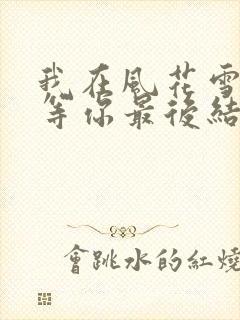 我在風花雪
等你最後結
會跳水的紅燒